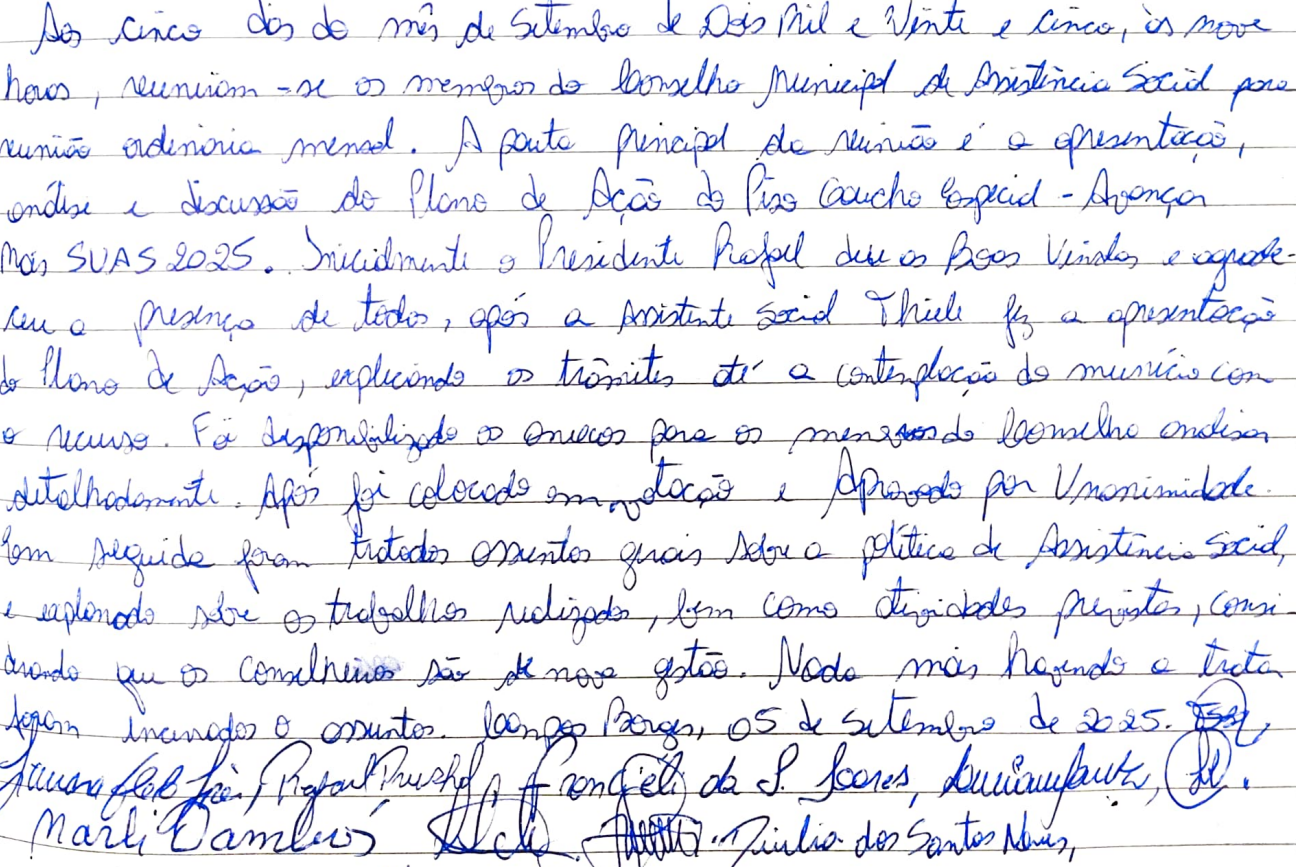 Aos cinco dias do mês de Setembro de Dois Mil e Vinte e cinco, às nove
horas, reuniram-se os membros do Conselho Municipal de Assistência Social para
reunião ordinária mensal. A pauta principal da reunião é a apresentação,
análise e discussão do Plano de Ação do Piso Gaucho Especial - Avançar
Mais SUAS 2025. Inicialmente o Presidente Rafael deu as Boas Vindas e agrade-
ceu a presença de todos, após a Assistente Social Thiele fez a apresentação
do Plano de Ação, explicando os trâmites até a contemplação do municio com
o recurso. Foi disponibilizado os anexos para os membros do Conselho analisar
detalhadamente. Após foi colocado em votação e Aprovado por Unanimidade.
Em seguida foram tratados assuntos gerais sobre a política de Assistência Social,
e explanado sobre os trabalhos realizados, bem como atividades previstas, consi-
derando que os conselheiros são de nova gestão. Nada mais havendo a trata
foram encerrados o assuntos. Campos Borges, 05 de setembro de 2025.
Rafael Franciéli da S. Soares,
Marli Dos Santos Neves,